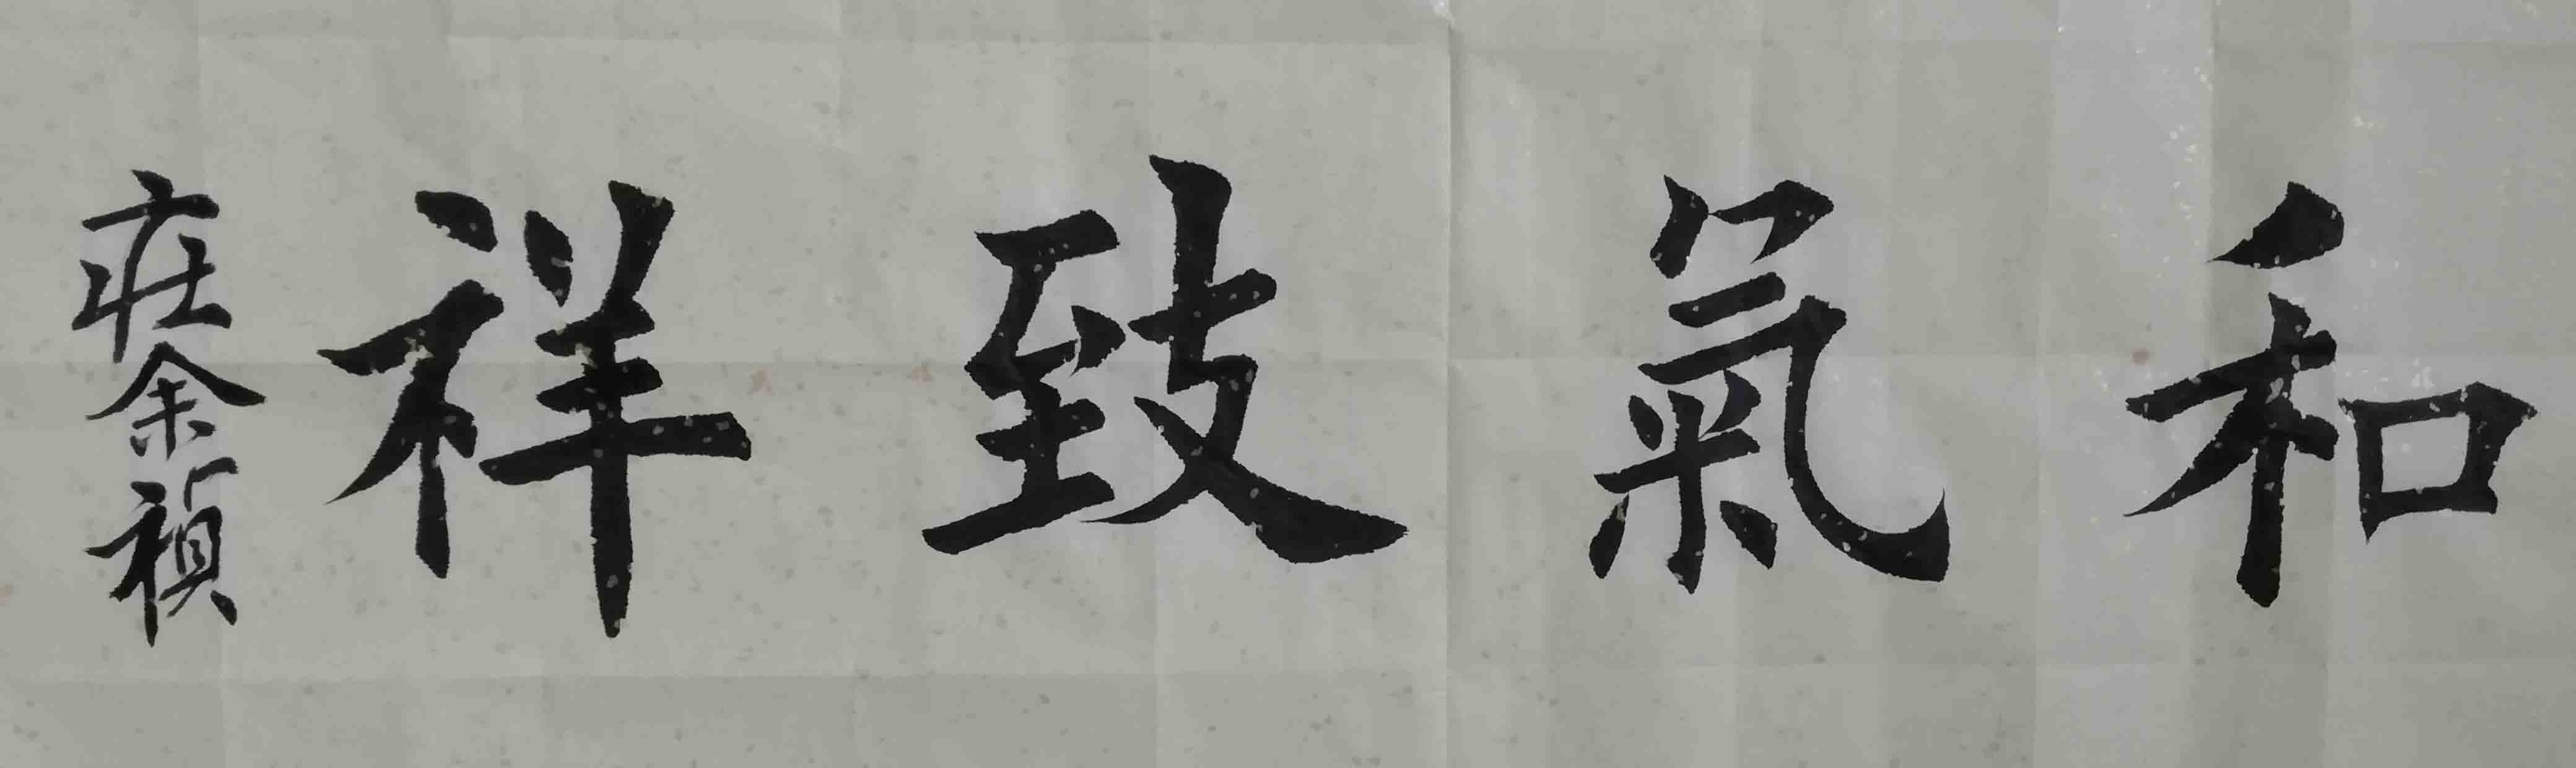 和氣致祥
莊余禎